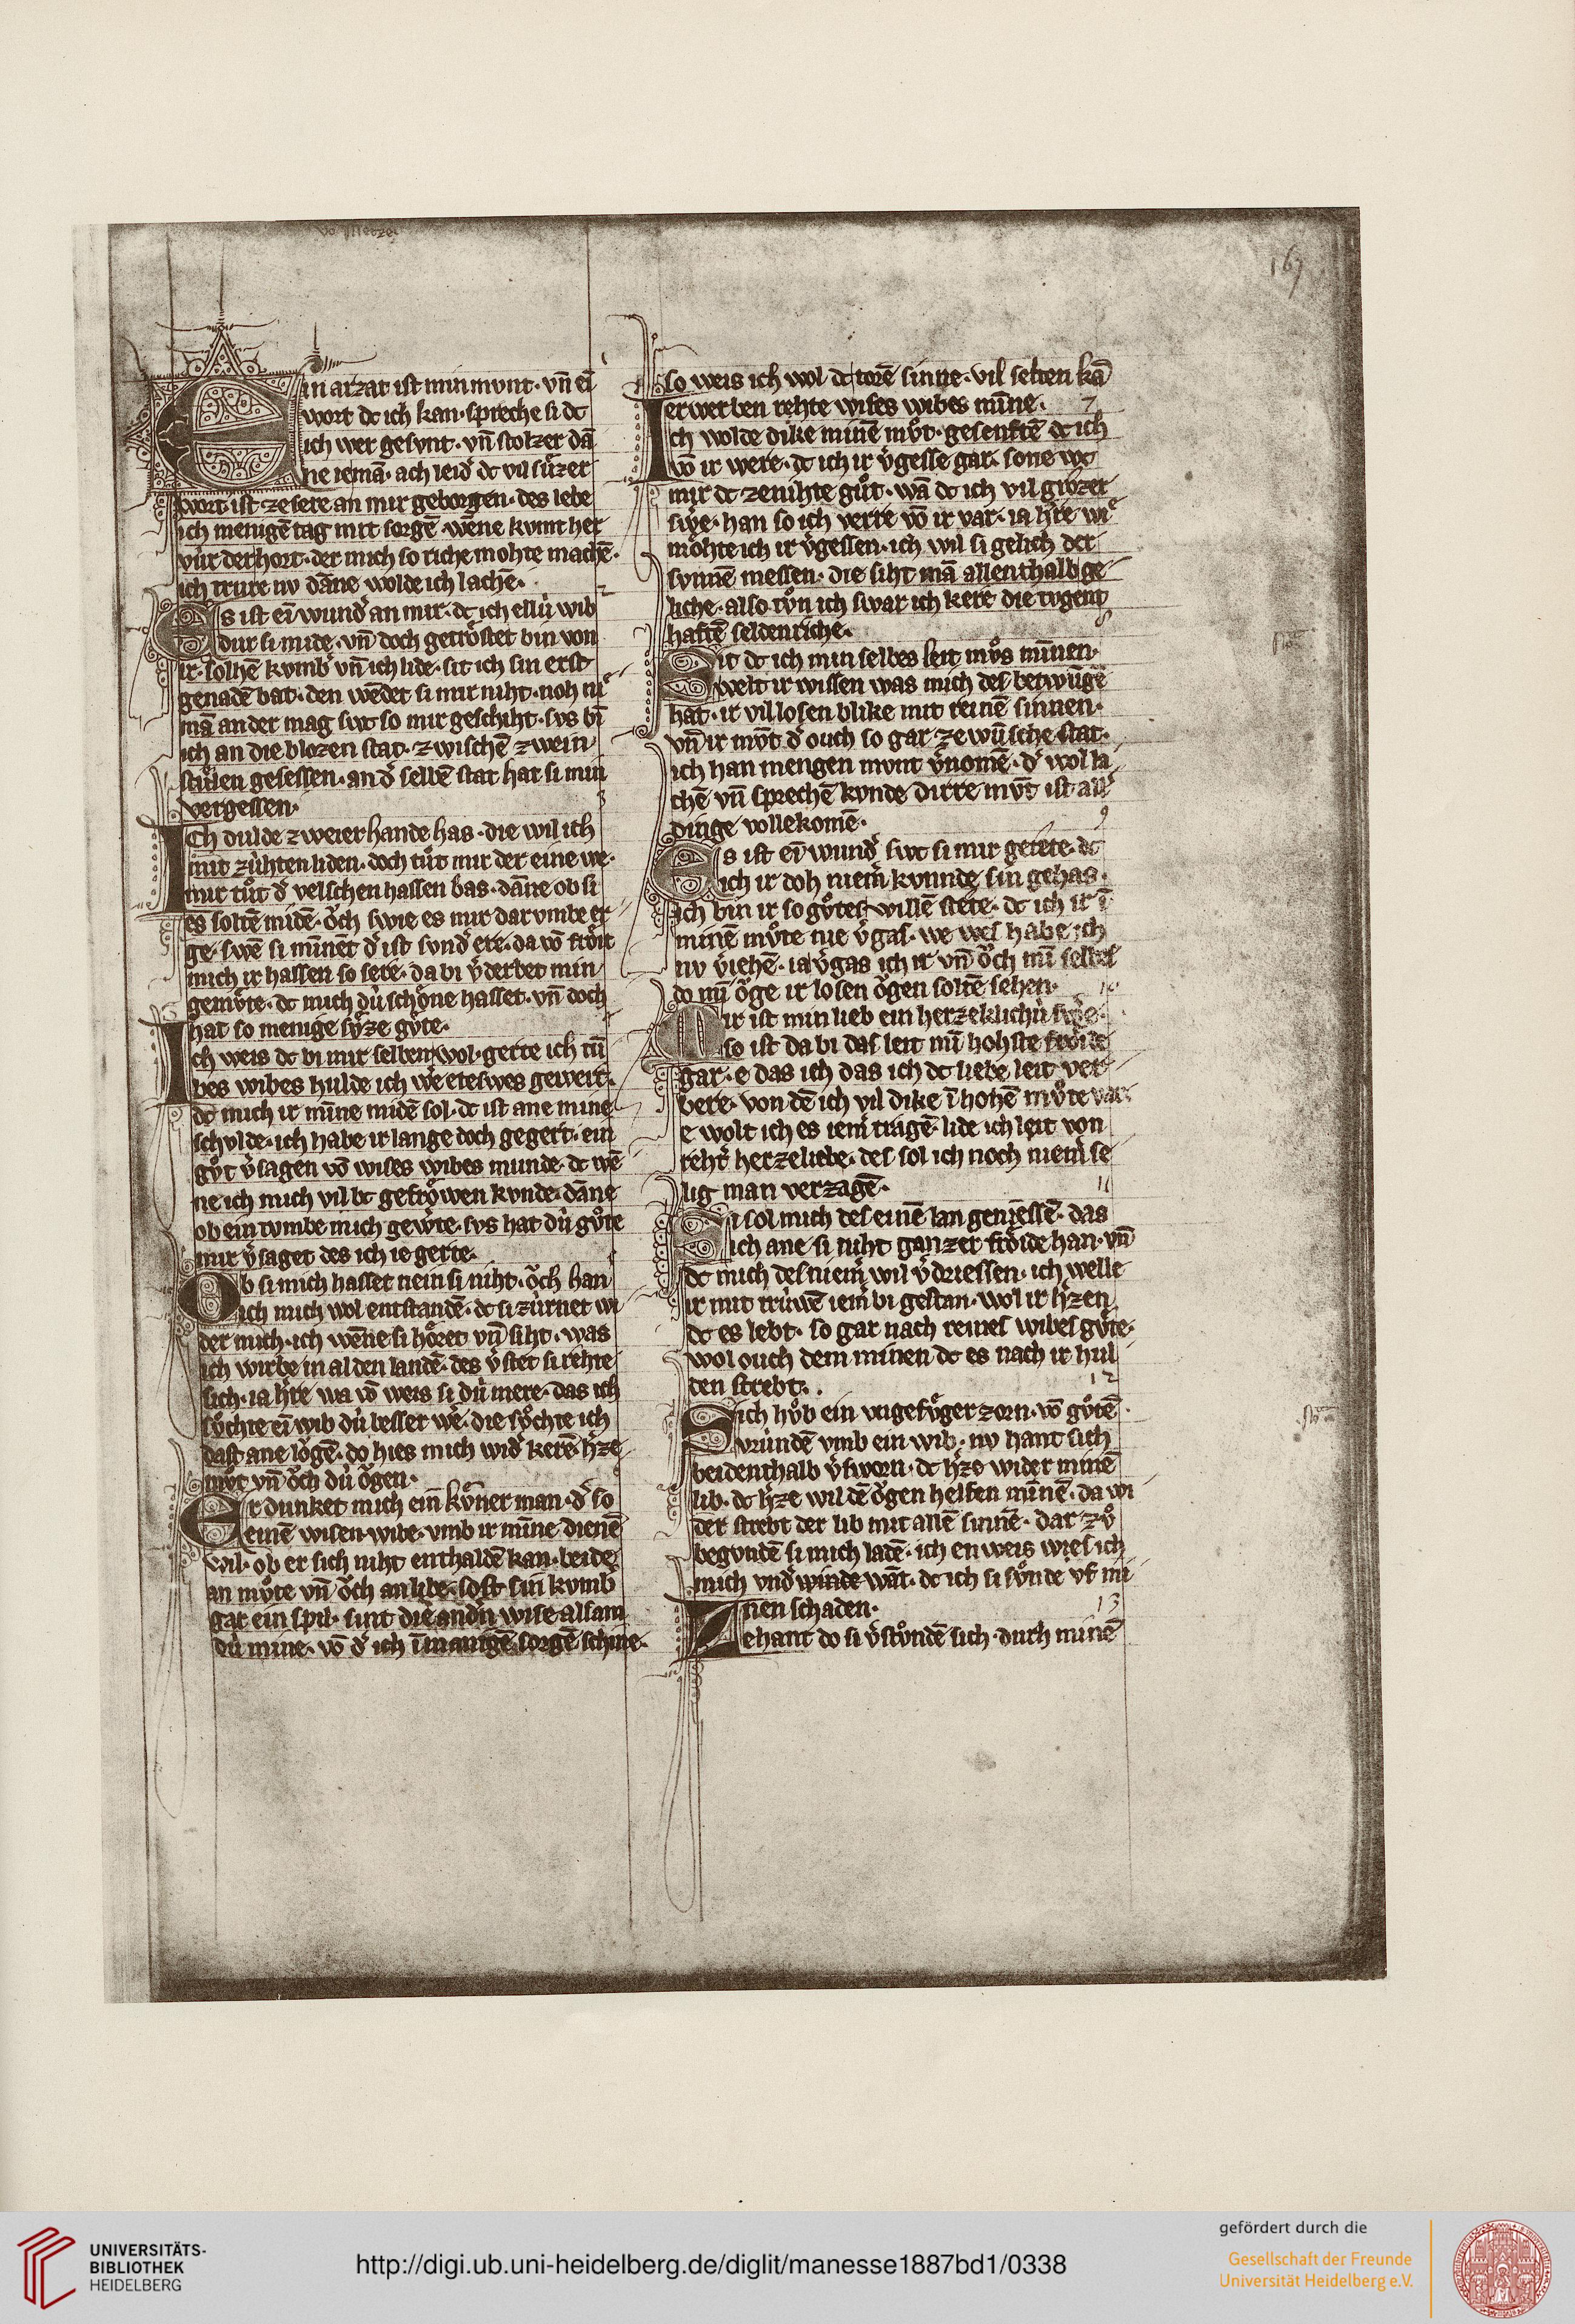 vō Metze.
167
in arzat ist min mvnt · vn̄ ei
wort dc ich kan · spreche si dc
ich wer gesvnt · vn̄ stolzer dā
ne iemā · ach leid' dc vil sůzer
wort ist ze sere an mir geborgen · des lebe
ich menigē tag mit sorgē · wēne kvmt her
vúr der hort · der mich so riche mohte machē ·
ich trure nv dāne wolde ich lachē ·
Es ist eī wund' an mir · dc ich ellú wib
dur si mide · vn̄ doch getröstet bin von
ir · solhē kvmb' vn̄ ich lide · sit ich sin erst
genadē bat · den wēdet si mir niht · noh nie
mā ander mag swc so mir geschiht · svs bī
ich an die blozen stat · zwischē zwein
stůlen gesessen · an d' selbē stat hat si min
vergessen ·
Ich dulde zweier hande has · die wil ich
mit zúhten liden · doch tůt mir der eine we ·
mir tůt d' velschen hassen bas · dāne ob si
es soltē midē · ŏch swie es mir darvmbe er
ge · swē si minnēt d' ist svnd' ere · da vō frŏit
mich ir hassen so sere · da bi v'derbet min
gemv̊te · dc mich dú schŏne hasset · vn̄ doch
hat so menige sv̊ze gv̊te ·
Ich weis dc bi mir selben wol · gerte ich tū
bes wibes hulde ich we' eteswes gewert ·
dc mich ir minne midē sol · dc ist ane mine
schvlde · ich habe ir lange doch gegert · ein
gv̊t v'sagen vō wises wibes munde · dc wē
ne ich mich vil bc gefrŏwen kvnde · dāne
ob ein tvmbe mich gew'te · svs hat dú gůte
mir v'saget des ich ie gerte ·
Ob si mich hasset nein si niht · ŏch han
ich mich wol entstandē · dc si zúrnet wi
der mich · ich wēne si hŏret vn̄ siht · was
ich wirbe in al den landē · des v'stet si rehte
sich · ia h're wa vō weis si dú mere · das ich
sv̊chte eī wib dú besser we' · die sv̊chte ich
dast ane lŏgē · do hies mich wid' kerē h'ze
mv̊t vn̄ ŏch dú ŏgen ·
Er dunket mich ein kv̊ner man · d' so
einē wisen wibe · vmb ir minne dienē
wil · ob er sich niht enthaldē kan · beide
an mv̊te vn̄ ŏch an libe · sost sin kvmb'
gar ein spil · sint die and'n wise alsam
dú mine · vō d' ich ī manigē sorgē schine ·
so weis ich wol dc torē sinne · vil selten kā
erwerben rehte wises wibes mīne ·
7
Ich wolde dike minē mv̊t · gesenftē dc ich
vō ir were · dc ich ir v'gesse gar · sone wc
mir dc ze nihte gůt · wā dc ich vil grŏzer
sw'e · han so ich verre vō ir var · ia h're wie
mŏhte ich ir v'gessen · ich wil si gelich der
svnnē messen · die siht mā allenthalb ge
liche · also tv̊n ich swar ich kere die tvgent
haftē seldenriche ·
8
Sit dc ich min selbes leit mv̊s minnen ·
welt ir wissen was mich des betwūgē
hat · ir vil losen blike mit reinē sinnen ·
vn̄ ir mv̊t d' ouch so gar ze wūsche stat ·
ich han mengen mvnt v'nomē · d' wol la
chē vn̄ sprechē kvnde dirre mv̄t ist all'
dinge vollekomē ·
9
Es ist eī wund' swc si mir getete · dc
ich ir doh niem' kvnnde sin gehas ·
ich bin ir so gv̊tes willē stete · dc ich ir ī
minē mv̊te nie v'gas · we wes habe ich
nv v'iehē · ia v'gas ich ir vn̄ ŏch mī selbes
do mī ŏge ir losen ŏgen soltē sehen ·
10
Mir ist min lieb ein herzeklichú sw'e ·
so ist da bi das leit mī hohste frŏide
gar · e das ich das ich dc liebe leit ver
bere · von dē ich vil dike ī hohē mv̊te var ·
e wolt ich es iem' tragē · lide ich leit von
reht' herzeliebe · des sol ich noch niem' se
lig man verzagē ·
11
Si sol mich des einē lan geniessē · das
ich ane si niht ganzer frŏide han · vn̄
dc mich des niem' wil v'driessen · ich welle
ir mit trúwē iem' bi gestan · wol ir h'zen
dc es lebt · so gar nach reines wibes gv̊te ·
wol ouch dem minen dc es nach ir hul
den strebt ·
12
Sich hv̊b ein vngefv̊ger zorn · vō gv̊tē
vrúndē vmb ein wib · nv hant sich
beidenthalb v'sworn · dc h'ze wider minē
lib · dc h'ze wil dē ŏgen helfen minnē · da wi
der strebt der lib mit allē sinnē · dar zv̊
begvndē si mich ladē · ich en weis wies ich
mich vnd'winde wāt · dc ich si sv̊nde vf mi
nen schaden ·
13
Zehant do si v'stv̊ndē sich · durh minē
UNIVERSITÄTS-
BIBLIOTHEK
HEIDELBERG
http://digi.ub.uni-heidelberg.de/diglit/manesse1887bd1/0338
gefördert durch die
Gesellschaft der Freunde
Universität Heidelberg e.V.